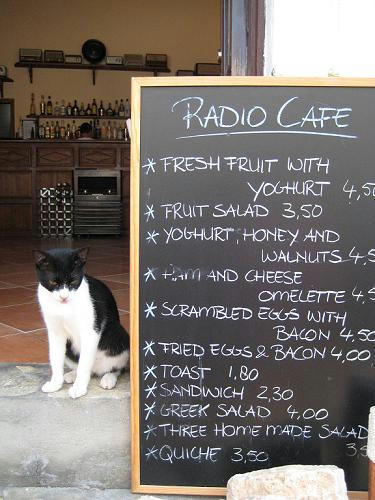 RADIO CAFE
* FRESH FRUIT WITH
YOGHURT 4,50
* FRUIT SALAD 3,50
* YOGHURT, HONEY AND
WALNUTS 4,5
* HAM AND CHEESE
OMELETTE 4,5
* SCRAMBLED EGGS WITH
BACON 4,50
* FRIED EGGS & BACON 4,00
* TOAST 1.80
* SANDWICH 2,30
* GREEK SALAD 4,00
* THREE HOME MADE SALAD
3,5
* QUICHE 3,50